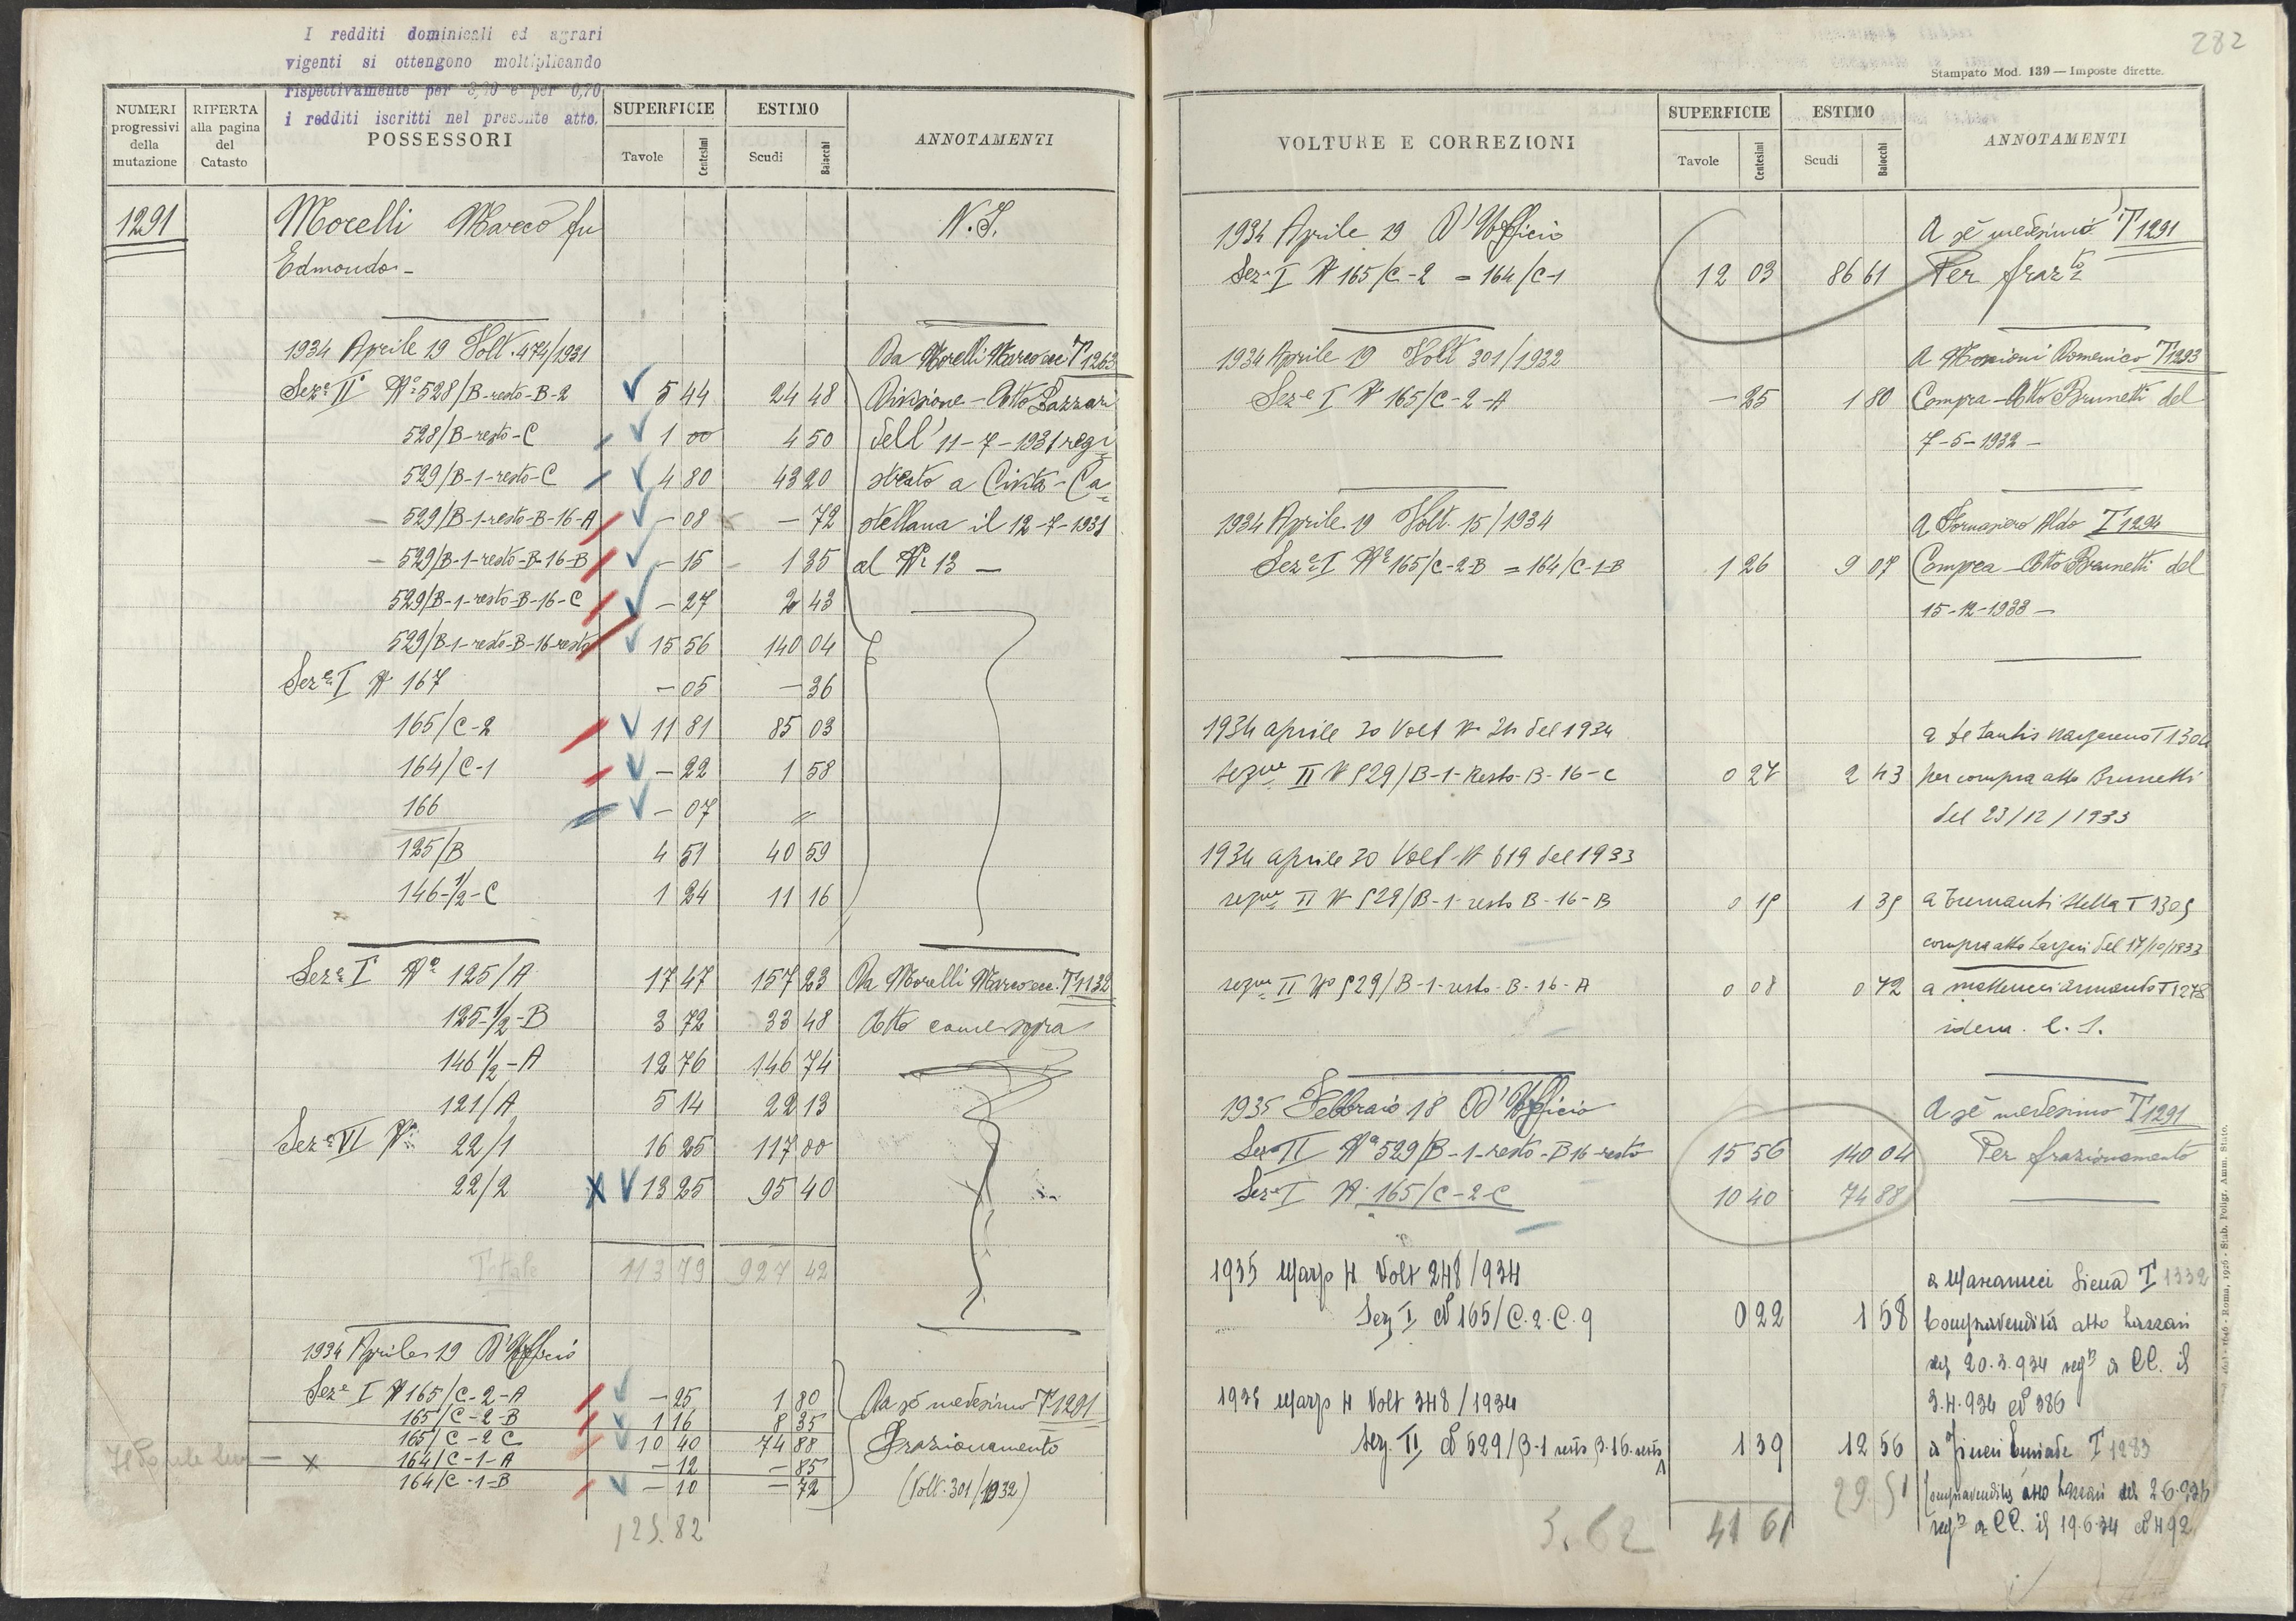 I redditi dominicali ed agrari
vigenti si ottengono moltiplicando
rispettivamente per e per 0,70
i redditi iscritti nel presente atto.
NUMERI progressivi della mutazione
RIFERTA alla pagina del Catasto
POSSESSORI
SUPERFICIE Tavole Centesimi
ESTIMO Scudi Baiocchi
ANNOTAMENTI
1291 Morelli Marco fu N.S.
Edmondo -
1934 Aprile 19 Volt. 474/1931 Da Morelli Marco ecc T 1263
Sez.e II N.o 528/B-resto-B-2 5 44 24 48 Divisione - Atto Lazzari
528/B-resto-C 1 00 4 50 dell' 11-7-1931 regi
529/B-1-resto-C 4 80 43 20 strato a Civita-Ca
529/B-1-resto-B-16-A - 08 - 72 stellana il 12-7-1931
529/B-1-resto-B-16-B - 15 1 35 al N. 13 -
529/B-1-resto-B-16-C - 27 2 43
529/B-1-resto-B-16-resto 15 56 140 04
Sez.e I N 167 - 05 - 36
165/C-2 11 81 85 03
164/C-1 - 22 1 58
166 - 07 "
125/B 4 51 40 59
146-1/2-C 1 24 11 16
Sez.e I N.o 125/A 17 47 157 23 Da Morelli Marco ecc. T 1132
125-1/2-B 3 72 33 48 Atto come sopra
146 1/2-A 12 76 146 74
121/A 5 14 22 13
Sez.e VI N. 22/1 16 25 117 00
22/2 X 13 25 95 40
Totale 113 79 927 42
1934 Aprile 19 D'Ufficio
Sez.e I N 165/C-2-A - 25 1 80 Da sé medesimo T 1291
165/C-2-B 1 16 8 35
165/C-2 C 10 40 74 88 Frazionamento
x 164/C-1-A - 12 - 85
164/C-1-B - 10 - 72 (Volt. 301/1932)
125.82
282
Stampato Mod. 139 — Imposte dirette.
VOLTURE E CORREZIONI
SUPERFICIE Tavole Centesimi
ESTIMO Scudi Baiocchi
ANNOTAMENTI
1934 Aprile 19 D'Ufficio A sé medesimo T 1291
Sez.e I N 165/C-2 = 164/C-1 12 03 86 61 Per fraz.to
1934 Aprile 19 Volt 301/1932 A Domenico T 1293
Sez.e I N 165/C-2-A - 25 1 80 Compra - Atto Brunetti del
7-5-1932 -
1934 Aprile 19 Volt. 15/1934 A Fornasiero Aldo T 1294
Sez.e I N.o 165/C-2-B = 164/C-1-B 1 26 9 07 Compra - Atto Brunetti del
15-12-1933 -
1934 aprile 30 Volt N 24 del 1934 a De Santis T 1304
sez.ne II N 529/B-1-Resto-B-16-C 0 27 2 43 per compra atto Brunetti
del 23/12/1933
1934 aprile 30 Volt N 619 del 1933
sez.ne II N 529/B-1-resto B-16-B 0 15 1 35 a Stella T 1305
compra atto Lazzari del 17/10/1933
sez.ne II N.o 529/B-1-resto-B-16-A 0 08 0 72 a Matteucci Armando T 1278
idem. C. S.
1935 Febbraio 18 D'Ufficio A sé medesimo T 1291
Sez.e II N.o 529/B-1-resto-B16-resto 15 56 140 04 Per frazionamento
Sez.e I N. 165/C-2-C 10 40 74 88
1935 Marzo 4 Volt 248/934 a Mascarucci Siena T 1332
Sez I N 165/C.2.C.9 0 22 1 58 Compravendita atto Lazzari
del 20.3.934 reg.to a CC. il
1935 Marzo 4 Volt 348/1934 3.4.934 N 386
Sez. II N 529/B-1 resto B.16. resto A 1 39 12 56 a T 1283
29.51 Compravendita atto Lazzari del 2 6.934
5.62 41 61 reg.to a CC. il 19.6.34 N 492